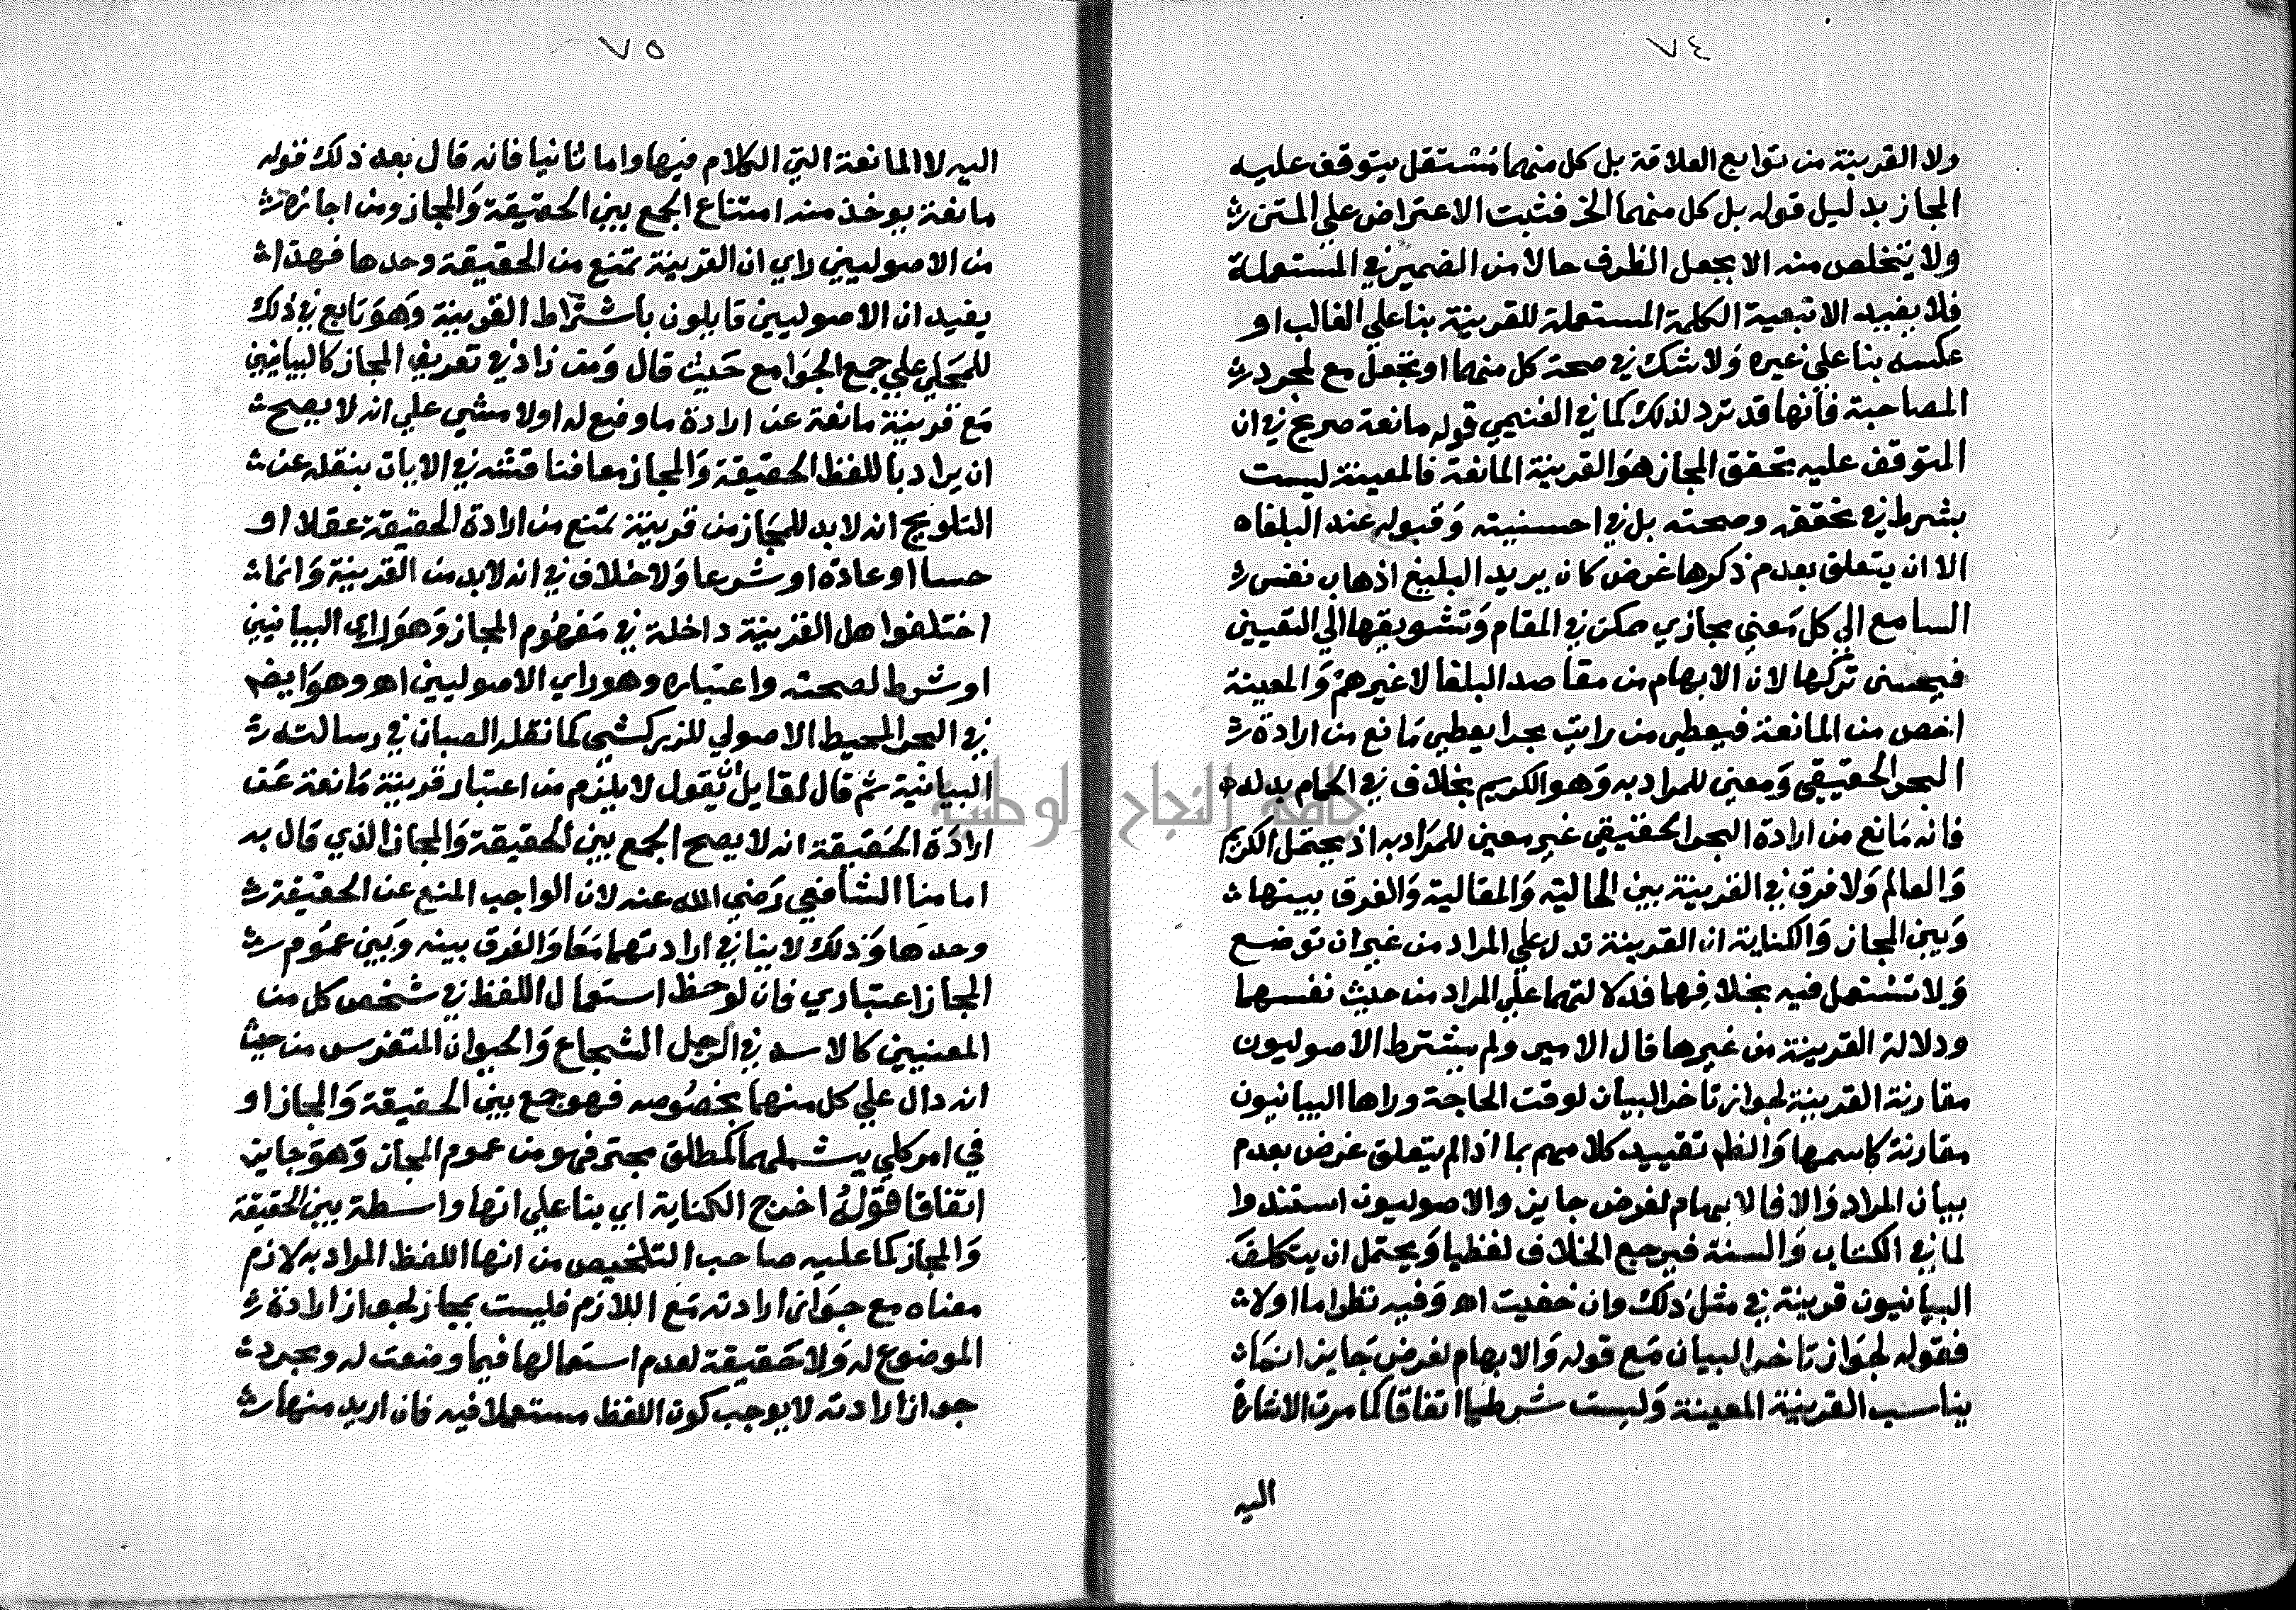 ٧٤
ولا القرينة من توابع العلاقة بل كل منهما مستقل يتوقف عليه
المجاز بدليل قوله بل كل منهما الخ فثبت الاعتراض علي المتن
ولا يتخلص منه الا بجعل الظرف حالا من الضمير في المستعملة
فلا يفيد الا تبعية الكلمة المستعملة للقرينة بنا علي الغالب او
عكسه بنا علي غيره ولا شك في صحة كل منهما او تجعل مع لمجرد
المصاحبة فانها قد ترد لذلك كما في الغنيمي قوله مانعة صريح في ان
المتوقف عليه تحقق المجاز هو القرينة المانعة فالمعينة ليست
بشرط في تحققه وصحته بل في احسنيته وقبوله عند البلغاه
الا ان يتعلق بعدم ذكرها غرض كان يريد البليغ اذهاب نفس
السامع الي كل معني مجازي ممكن في المقام وتشويقها الي التعيين
فيحسن تركها لان الابهام من مقاصد البلغا لا غيرهم والمعينة
اخص من المانعة فيعطي من رايت بحرا يعطي مانع من ارادة
البحر الحقيقي ومعين للمراد به وهو الكريم بخلاف في الحمام بدله
فانه مانع من ارادة البحر الحقيقي غير معين للمراد به اذ يحتمل الكريم
والعالم ولا فرق في القرينة بين الحالية والمقالية والفرق بينها
وبين المجاز والكناية ان القرينة تدل علي المراد من غير ان توضع
ولا تستعمل فيه بخلافهما فدلالتهما علي المراد من حيث نفسهما
ودلالة القرينة من غيرها قال الامير ولم يشترط الاصوليون
مقارنة القرينة لجواز تاخر البيان لوقت الحاجة وراها البيانيون
مقارنة كاسمها والظم تقييد كلامهم بما اذا لم يتعلق غرض بعدم
بيان المراد والا فالابهام لغرض جايز والاصوليون استندوا
لما في الكتاب والسنة فيرجع الخلاف لفظيا ويحتمل ان يتكلف
البيانيون قرينة في مثل ذلك وان خفيت اهـ وفيه نظر اما اولا
فقوله لجواز تاخر البيان مع قوله والابهام لغرض جايز انما
يناسب القرينة المعينة وليست شرطيا اتفاقا كما مرت الاشارة
اليه
٧٥
اليه لا المانعة التي الكلام فيها واما ثانيا فانه قال بعد ذلك قوله
مانعة يوخذ منه امتناع الجمع بين الحقيقة والمجاز ومن اجازه
من الاصوليين راي ان القرينة تمنع من الحقيقة وحدها فهذا
يفيد ان الاصوليين قايلون باشتراط القرينة وهو تابع في ذلك
للمحلي علي جمع الجوامع حيث قال ومن زاد في تعريف المجاز كالبيانيين
مع قرينة مانعة عن ارادة ما وضع له اولا مشي علي انه لا يصح
ان يراد باللفظ الحقيقة والمجاز معا فناقشه في الايات بنقله عن
التلويح انه لا بد للمجاز من قرينة تمنع من ارادة الحقيقة عقلا او
حسا او عادة او شرعا ولا خلاف في انه لا بد من القرينة وانما
اختلفوا هل القرينة داخلة في مفهوم المجاز وهو راي البيانيين
او شرط لصحته واعتباره وهو راي الاصوليين اهـ وهو ايضا
في البحر المحيط الاصولي للزركشي كما نقله الصبان في رسالته
البيانية ثم قال لقايل ان يقول لا يلزم من اعتبار قرينة مانعة عن
ارادة الحقيقة انه لا يصح الجمع بين الحقيقة والمجاز الذي قال به
امامنا الشافعي رضي الله عنه لان الواجب المنع عن الحقيقة
وحدها وذلك لا ينافي ارادتهما معا والفرق بينه وبين عموم
المجاز اعتباري فان لوحظ استعمال اللفظ في شخص كل من
المعنيين كالاسد في الرجل الشجاع والحيوان المتفرس من حيث
انه دال علي كل منهما بخصوصه فهو جمع بين الحقيقة والمجاز او
في امر كلي يشملهما كمطلق مجتر فهو من عموم المجاز وهو جايز
اتفاقا قوله اخرج الكناية اي بنا علي انها واسطة بين الحقيقة
والمجاز كما عليه صاحب التلخيص من انها اللفظ المراد به لازم
معناه مع جواز ارادته مع اللازم فليست بمجاز لجواز ارادة
الموضوع له ولا حقيقة لعدم استعمالها فيما وضعت له ومجرد
جواز ارادته لا يوجب كون اللفظ مستعملا فيه فان اريد منها
جامعة النجاح الوطنية